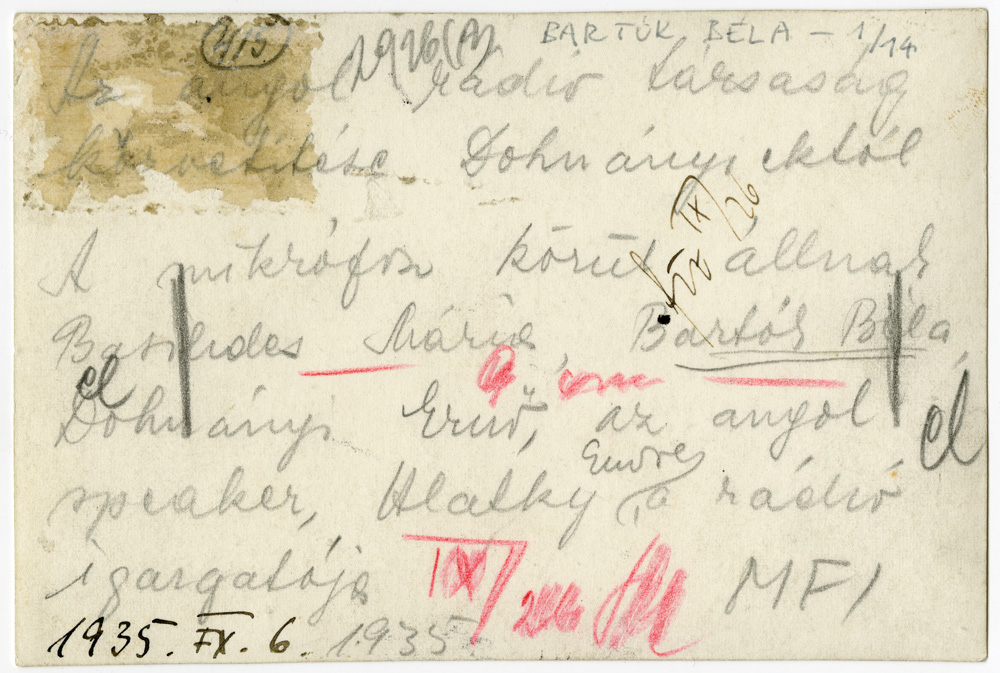 415
1926(A)
BARTÓK BÉLA - 1/14
Az angol rádió társaság
közvetítése Dohnányiéktól
IX/26
A mikrófon körül állnak
Basilides Mária, Bartók Béla,
9 cm
el
Dohnányi Ernő, az angol
el
Endre
speaker, Hlatky, a rádió
igazgatója
IX/
MFI
1935. IX. 6. 1935.